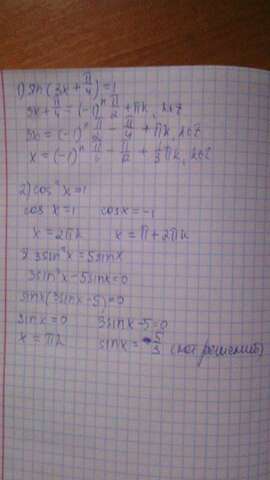 1) sin(3x + π/4) = 1
3x + π/4 = (-1)ⁿ π/2 + πk, k∈Z
3x = (-1)ⁿ π/2 - π/4 + πk, k∈Z
x = (-1)ⁿ π/6 - π/12 + 1/3 πk, k∈Z
2) cos²x = 1
cos x = 1 cosx = -1
x = 2πk x = π + 2πk
3sin²x = 5sinx
3sin²x - 5sinx = 0
sinx(3sinx - 5) = 0
sinx = 0 3sinx - 5 = 0
x = πk sinx = 5/3 (нет решений)